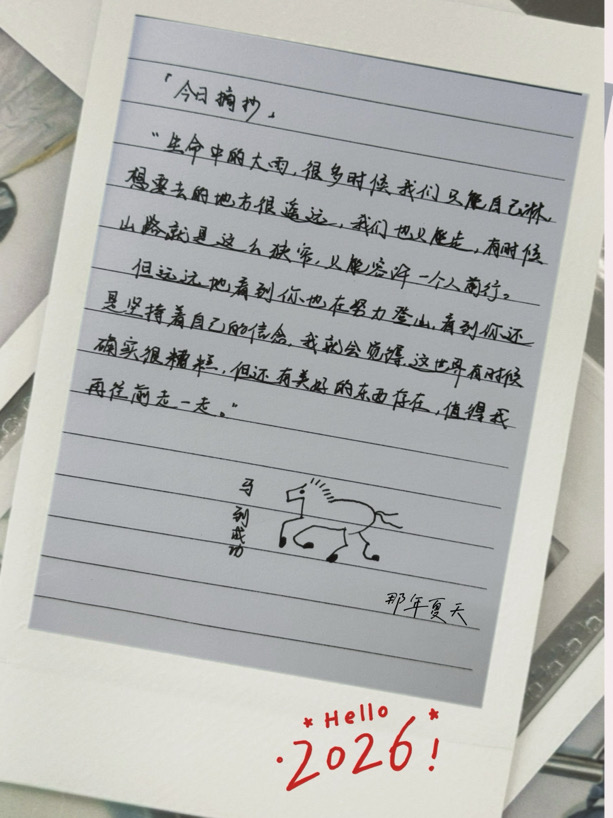 「今日摘抄」
“生命中的大雨，很多时候我们只能自己淋，
想要去的地方很遥远，我们也只能走，有时候
山路就是这么狭窄，只能容许一个人前行。
但远远地看到你也在努力登山，看到你还
是坚持着自己的信念，我就会觉得，这世界有时候
确实很糟糕，但还有美好的东西存在，值得我
再往前走一走。”
马到成功
那年夏天
Hello
2026!